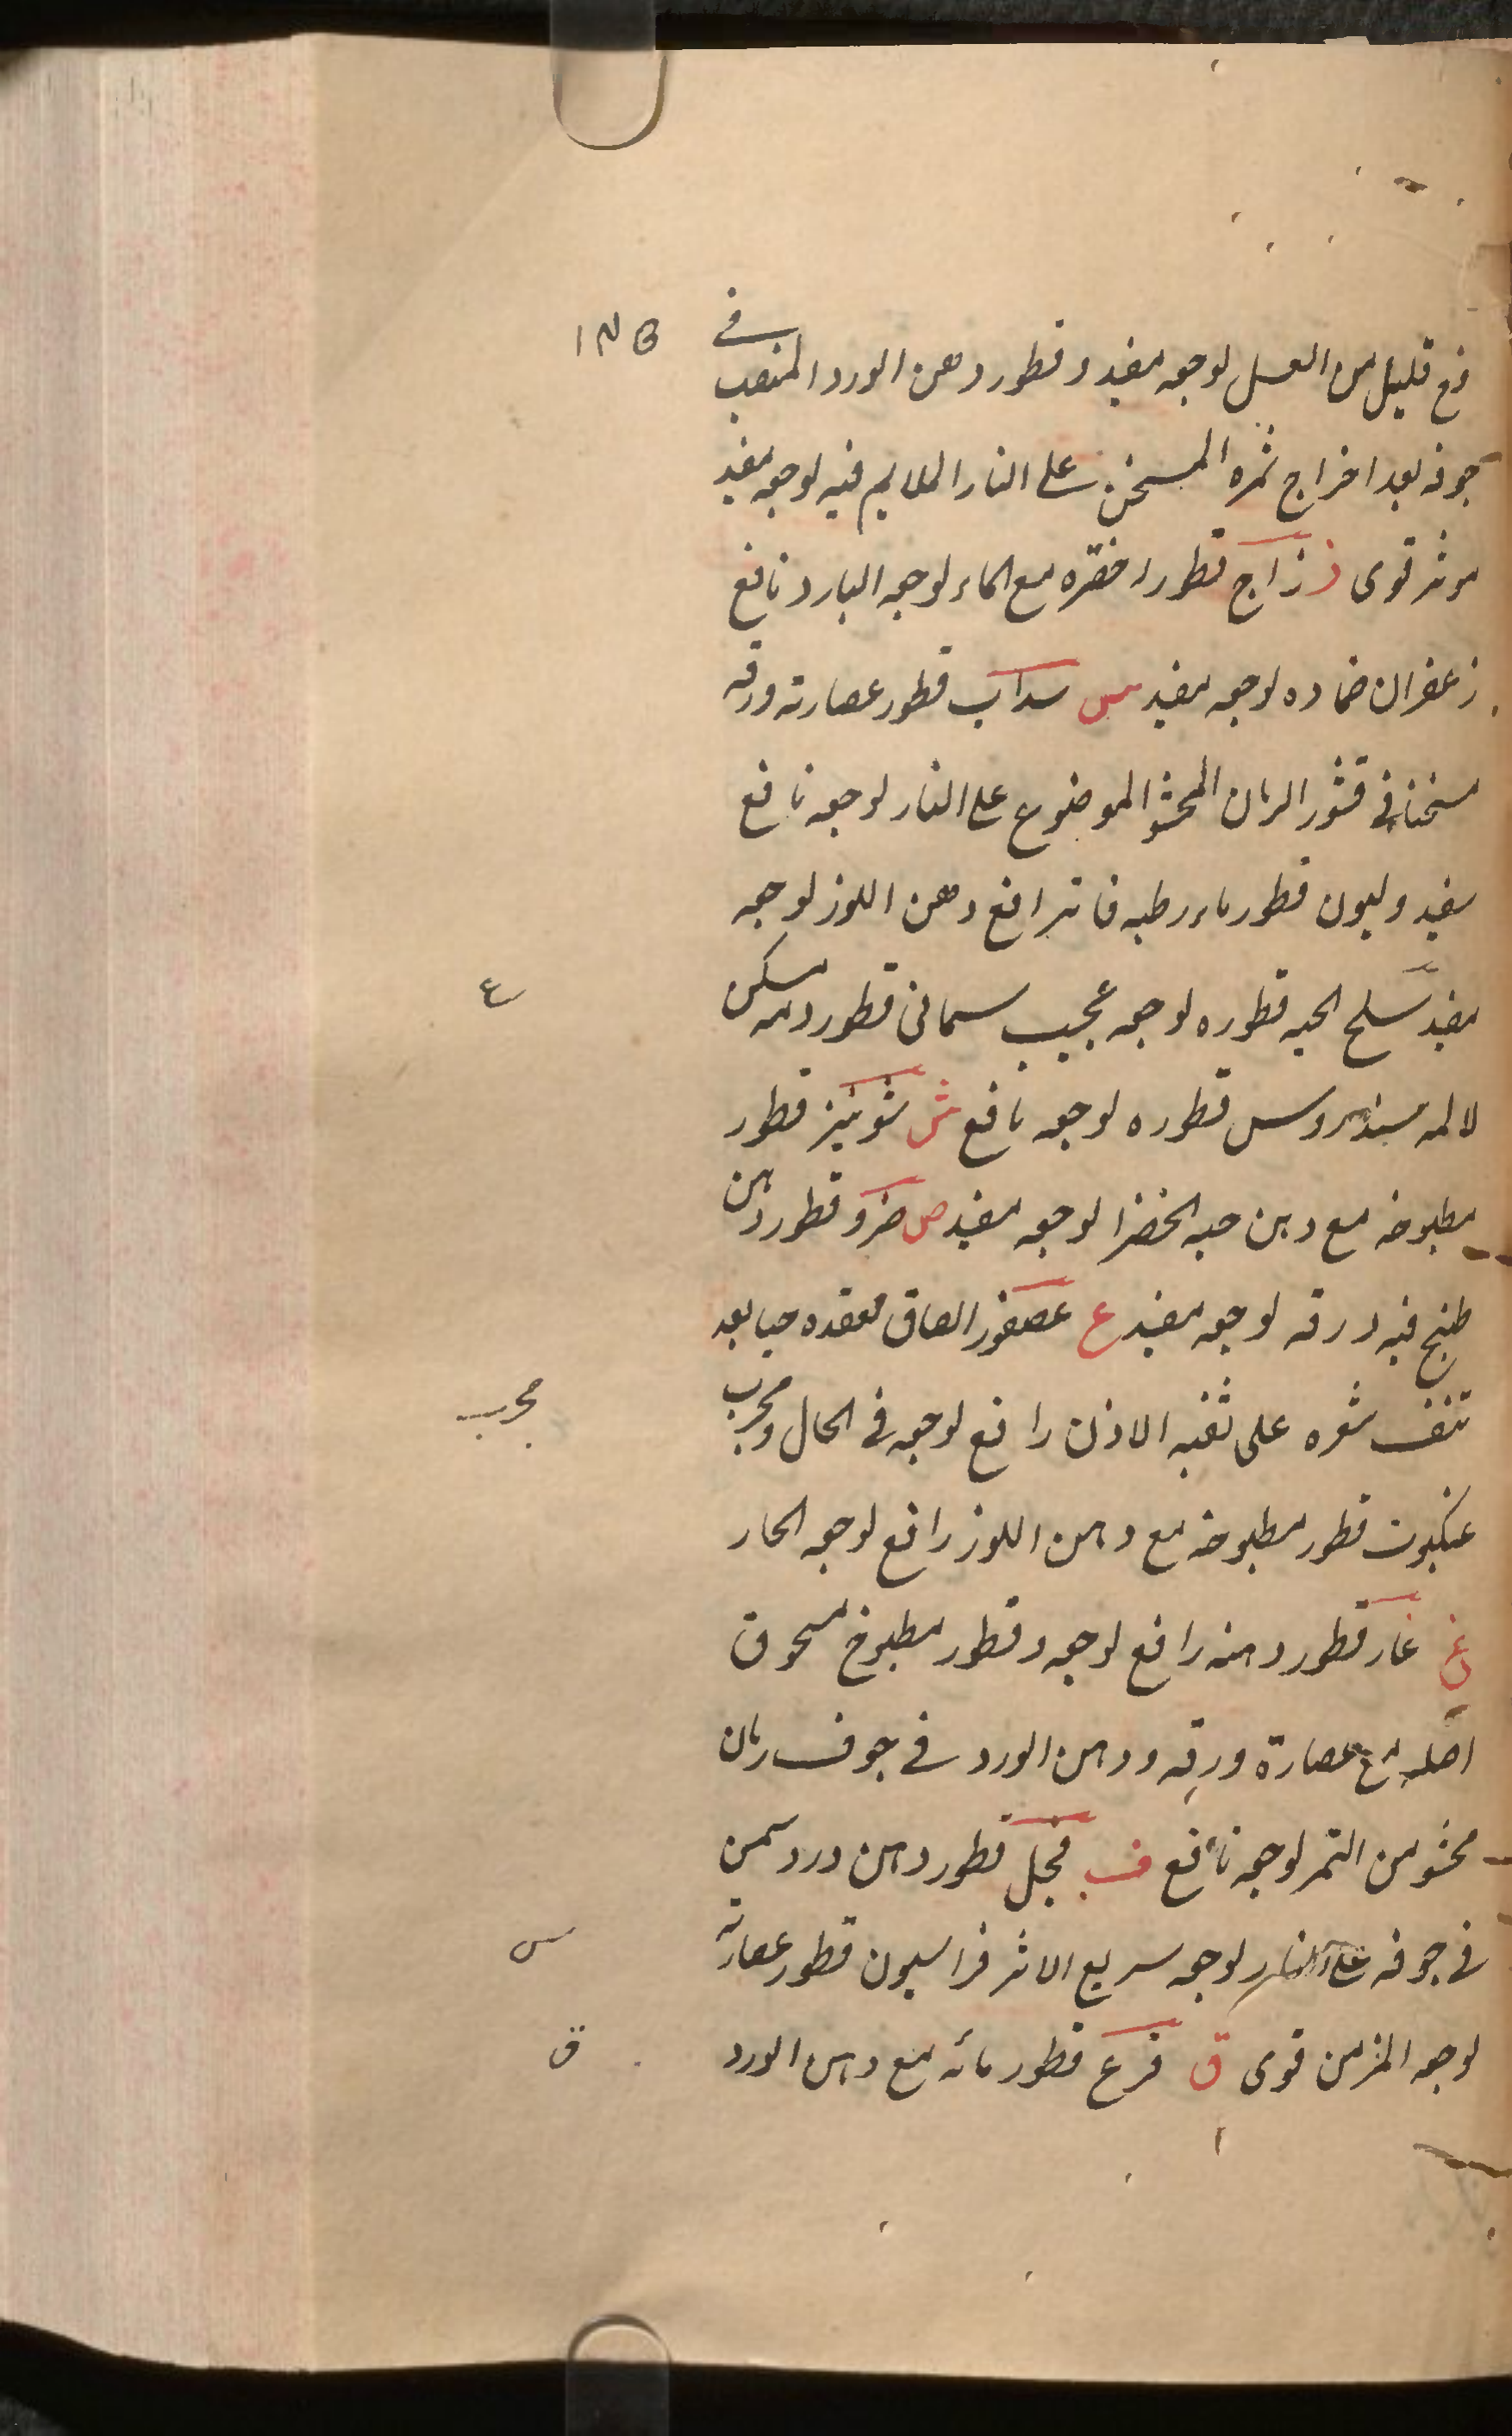 مع قليل من العسل لوجعه مفيد وقطور دهن الورد المنصب في
جوفه بعد اخراج ثمره المسخن على النار الملايم فيه لوجعه مفيد
موثر قوى ز زاج قطور اخضره مع الماء لوجعه البارد نافع
زعفران ضماده لوجعه مفيد س سداب قطور عصارته ورقه
مسخنا في قشور الرمان المحشو الموضوع على النار لوجعه نافع
مفيد وليون قطور ماء رطبه فاتر امع دهن اللوز لوجعه
مفيد سلخ الحيه قطوره لوجعه عجيب سمانى قطور دمه مسكن
لالمه سندروس قطوره لوجعه نافع ش شونيز قطور
مطبوخه مع دهن حبه الخضرا لوجعه مفيد ص ضرو قطور دهن
طبخ فيه ورقه لوجعه مفيد ع عصفور الصاق مقعده حيا بعد
نتف شعره على ثقبه الاذن رافع لوجعه في الحال ومجرب
عنكبوت قطور مطبوخه مع دهن اللوز رافع لوجعه الحار
غ غار قطور دهنه رافع لوجعه وقطور مطبوخ مسحوق
اصله مع عصارة ورقه ودهن الورد في جوف رمان
محشو من الثمر لوجعه نافع ف فجل قطور دهن ورد سمن
في جوفه على النار لوجعه سريع الاثر فراسيون قطور عصارته
لوجعه المزمن قوى ق قرع قطور مائه مع دهن الورد
ع
مجرب
س
ق